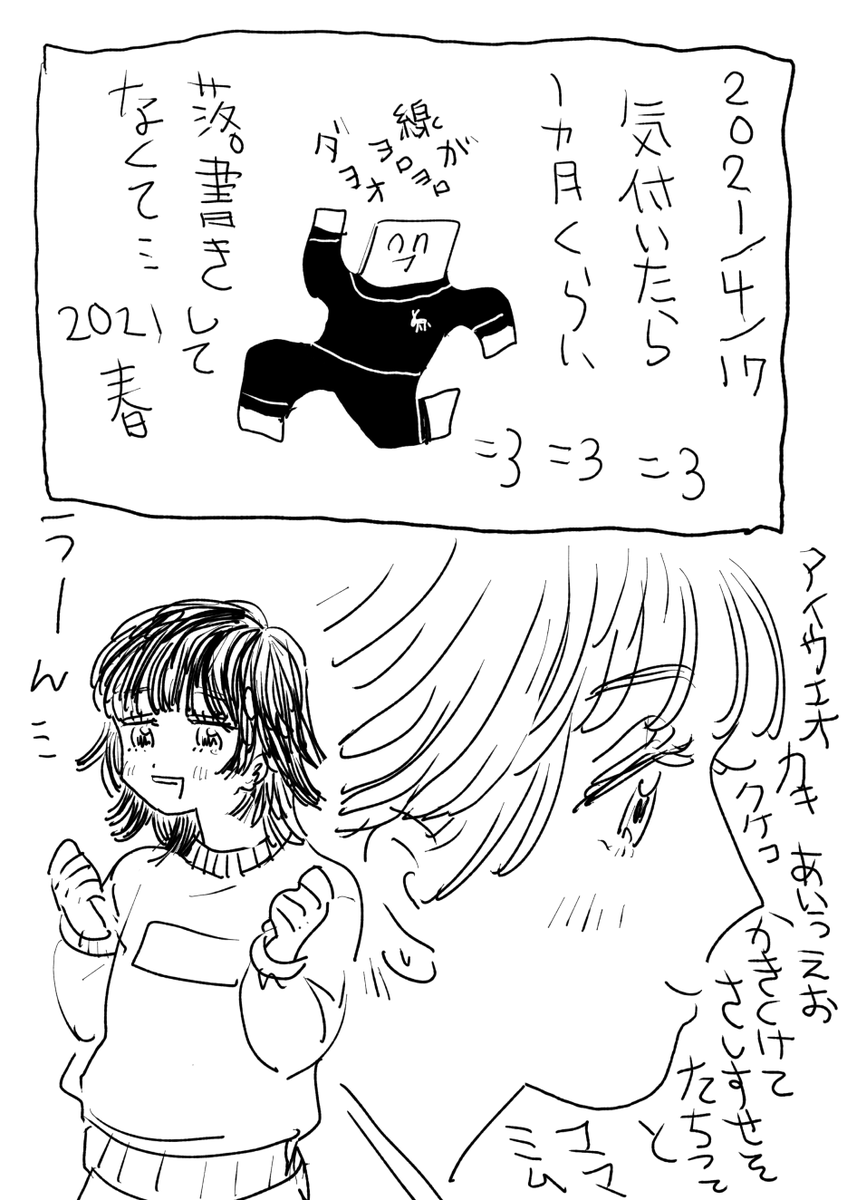 2021/4/17
気付いたら
1カ月くらい
線が
ヨロヨロ
ダヨオ
落書きして
なくて…
2021春
=3 =3 =3
うーん…
アイウエオ
カキクケコ
あいうえお
かきくけて
さしすせそ
たちってと
コマ
ミム